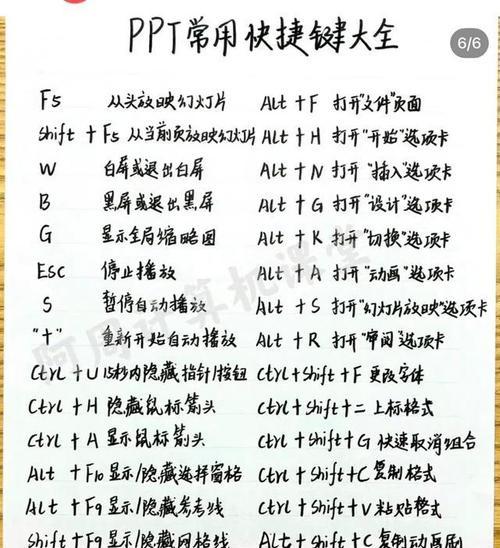 6/6
PPT常用快捷键大全
F5 从头放映幻灯片 Alt + F 打开"文件"页面
Shift + F5 从当前页放映幻灯片 Alt + H 打开"开始"选项卡
W 白屏或退出白屏 Alt + N 打开"插入"选项卡
B 黑屏或退出黑屏 Alt + G 打开"设计"选项卡
G 显示全局缩略图 Alt + K 打开"切换"选项卡
Esc 停止播放 Alt + A 打开"动画"选项卡
S 暂停自动播放 Alt + S 打开"幻灯片放映"选项卡
"+" 重新开始自动播放 Alt + R 打开"审阅"选项卡
Ctrl + U 15秒内隐藏指针/按钮 Ctrl + Shift + F 更改字体
Ctrl + H 隐藏鼠标箭头 Ctrl + Shift + = 上标格式
Ctrl + A 显示鼠标箭头 Ctrl + Shift + G 快速取消组合
Alt + F10 显示/隐藏选择窗格 Ctrl + Shift + C 复制格式
Alt + F9 显示/隐藏参考线 Ctrl + Shift + V 粘贴格式
Shift + F9 显示/隐藏网格线 Alt + Shift + C 复制动画刷
阿周计算机课堂